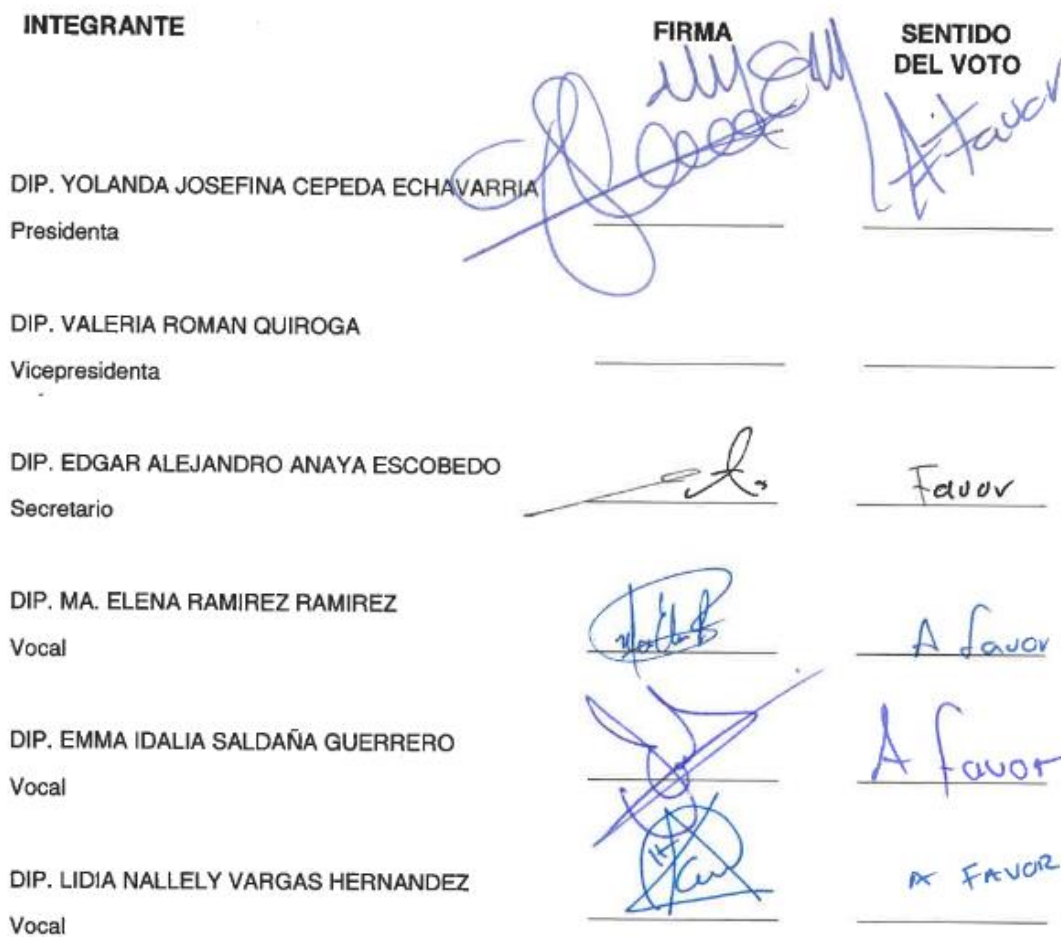 INTEGRANTE FIRMA SENTIDO DEL VOTO
DIP. YOLANDA JOSEFINA CEPEDA ECHAVARRIA A favor
Presidenta
DIP. VALERIA ROMAN QUIROGA
Vicepresidenta
DIP. EDGAR ALEJANDRO ANAYA ESCOBEDO Favor
Secretario
DIP. MA. ELENA RAMIREZ RAMIREZ A favor
Vocal
DIP. EMMA IDALIA SALDAÑA GUERRERO A favor
Vocal
DIP. LIDIA NALLELY VARGAS HERNANDEZ A FAVOR
Vocal